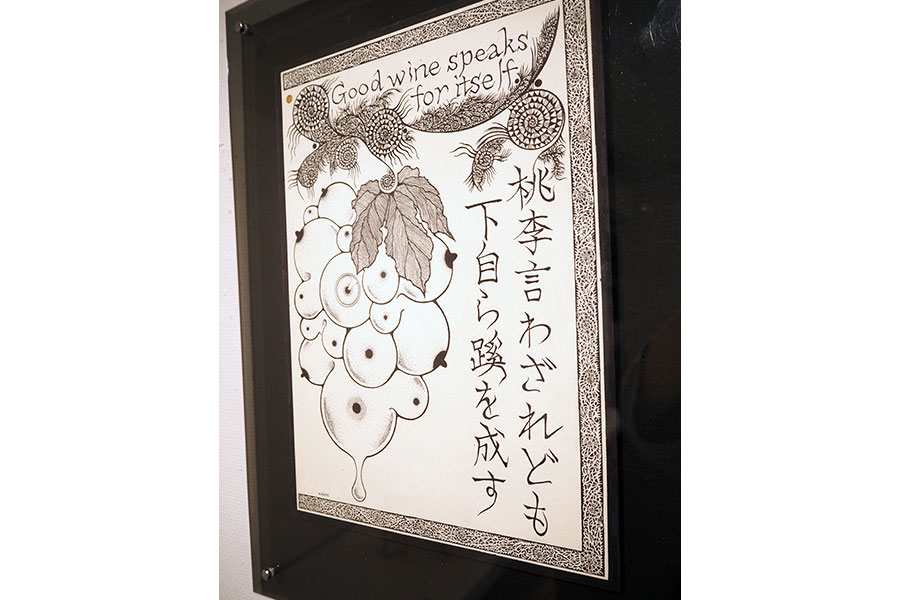 Good wine speaks
for itself.
桃李言わざれども
下自ら蹊を成す